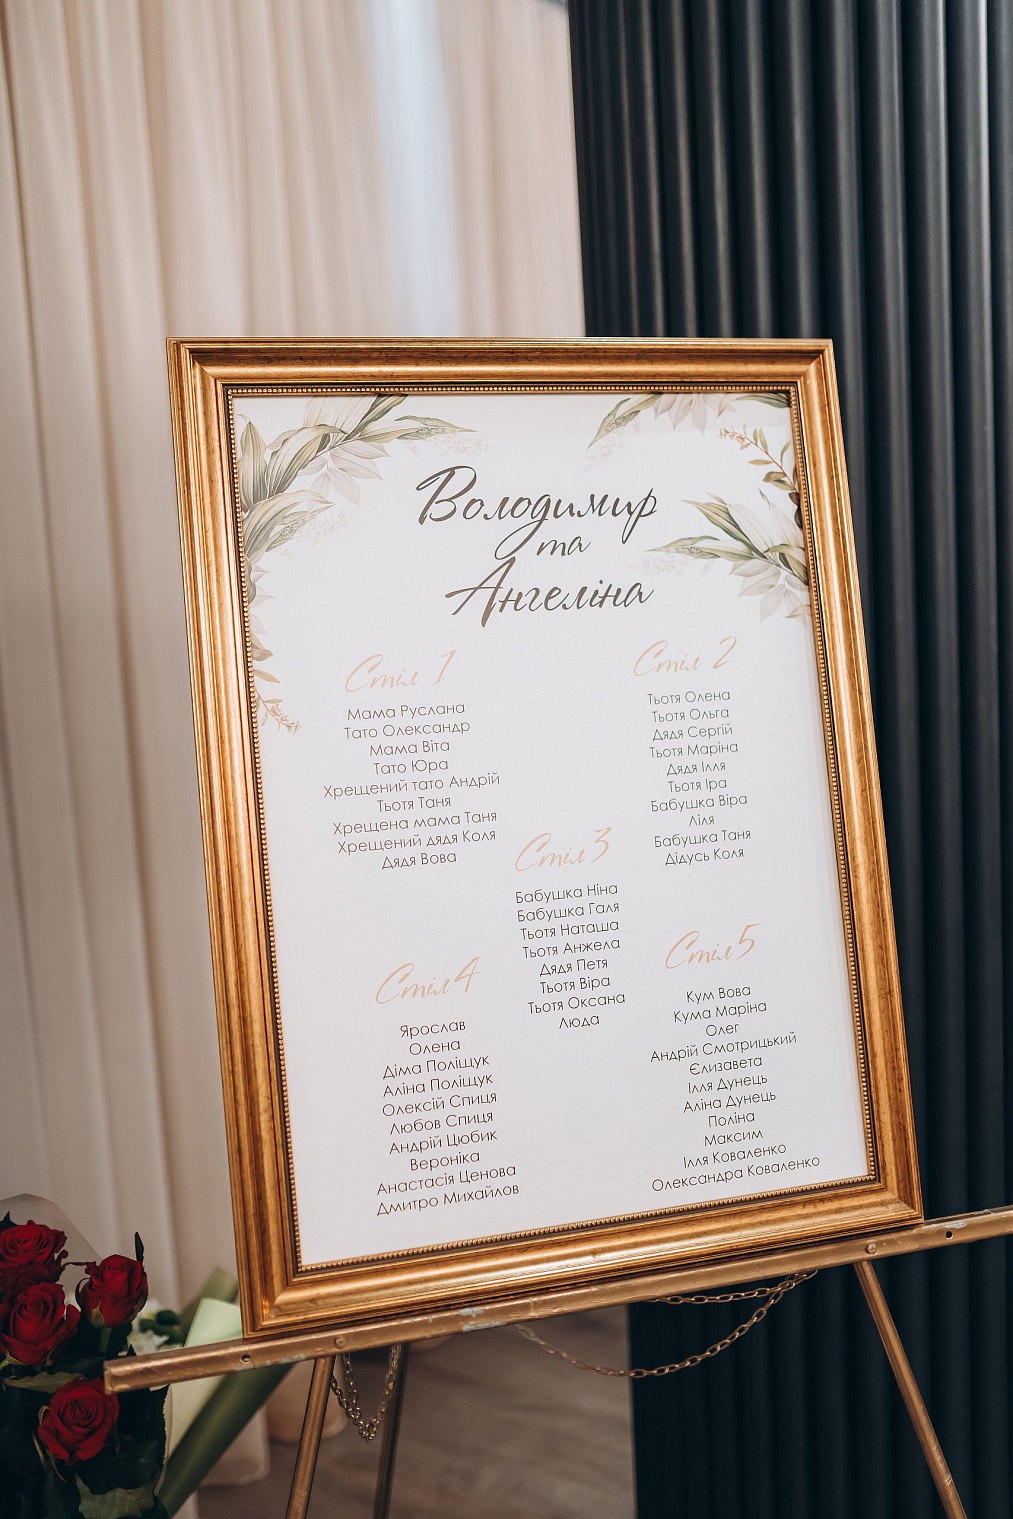 Володимир
та
Ангеліна
Стіл 1
Мама Руслана
Тато Олександр
Мама Віта
Тато Юра
Хрещений тато Андрій
Тьотя Таня
Хрещена мама Таня
Хрещений дядя Коля
Дядя Вова
Стіл 2
Тьотя Олена
Тьотя Ольга
Дядя Сергій
Тьотя Маріна
Дядя Ілля
Тьотя Іра
Бабушка Віра
Ліля
Бабушка Таня
Дідусь Коля
Стіл 3
Бабушка Ніна
Бабушка Галя
Тьотя Наташа
Тьотя Анжела
Дядя Петя
Тьотя Віра
Тьотя Оксана
Люда
Стіл 4
Ярослав
Олена
Діма Поліщук
Аліна Поліщук
Олексій Спиця
Любов Спиця
Андрій Цюбик
Вероніка
Анастасія Ценова
Дмитро Михайлов
Стіл 5
Кум Вова
Кума Маріна
Олег
Андрій Смотрицький
Єлизавета
Ілля Дунець
Аліна Дунець
Поліна
Максим
Ілля Коваленко
Олександра Коваленко